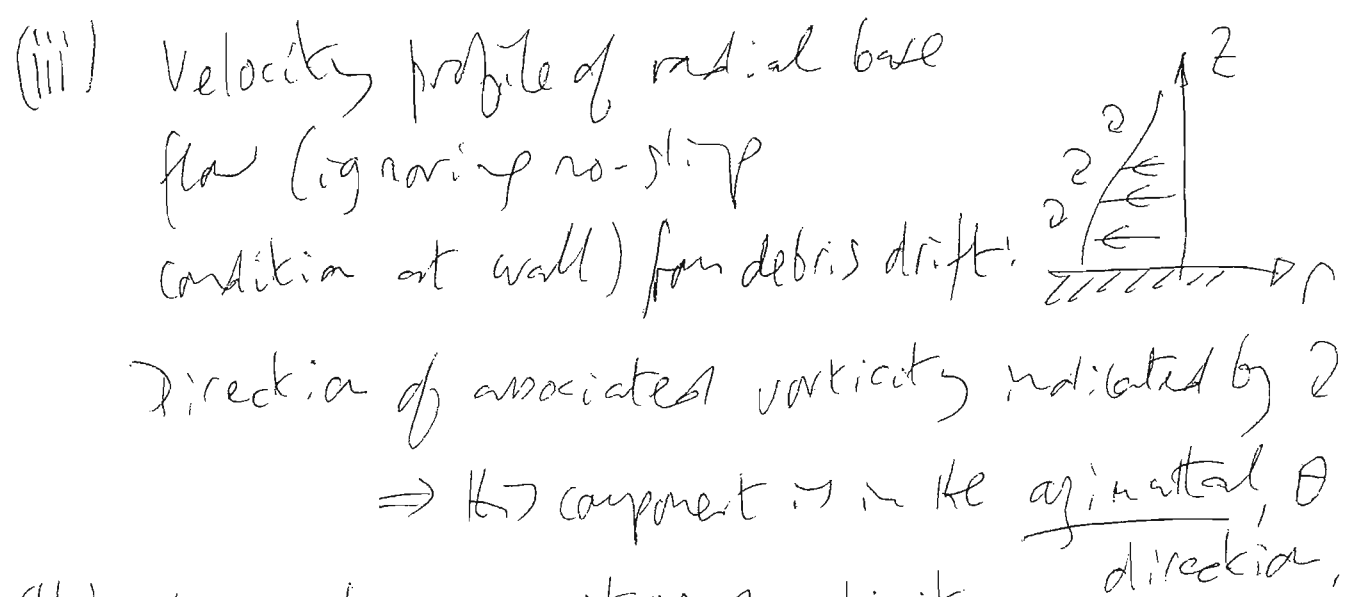 (iii) Velocity profile of radial base
flow (ignoring no-slip
condition at wall) from debris drift:
z
r
Direction of associated vorticity indicated by
⇒ this component is in the azimuthal, θ
direction.